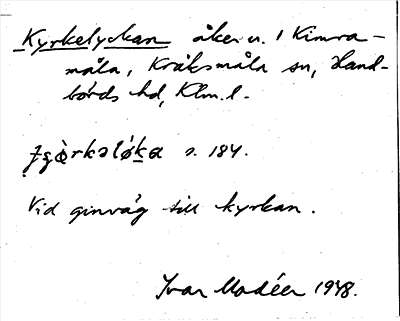 Kyrkelyckan åker u. 1 Kimra-
måla, Kråksmåla sn, Hand-
börds hd, Klm. l.
s. 184.
Vid ginväg till kyrkan.
Ivar Modéer 1948.